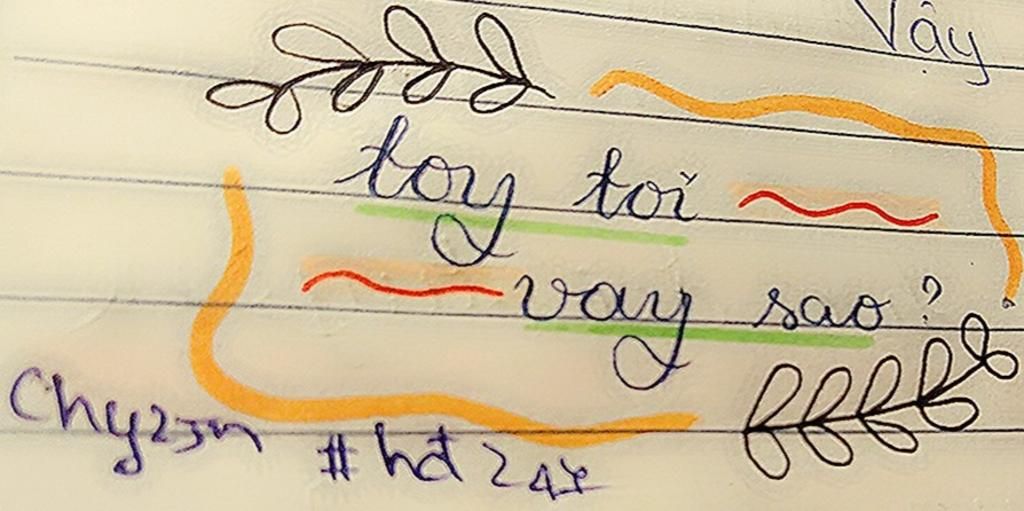 Vậy
toy tơi
vay sao?
Chyzsn #hđ247